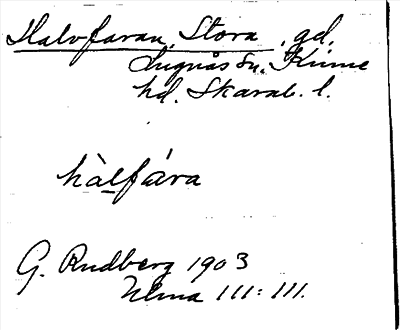 Halvfaran, Stora, gd,
Lugnås sn. Kinne
hd. Skarab. l.
hàlfára
G. Rudberg 1903
Ulma 111:111.